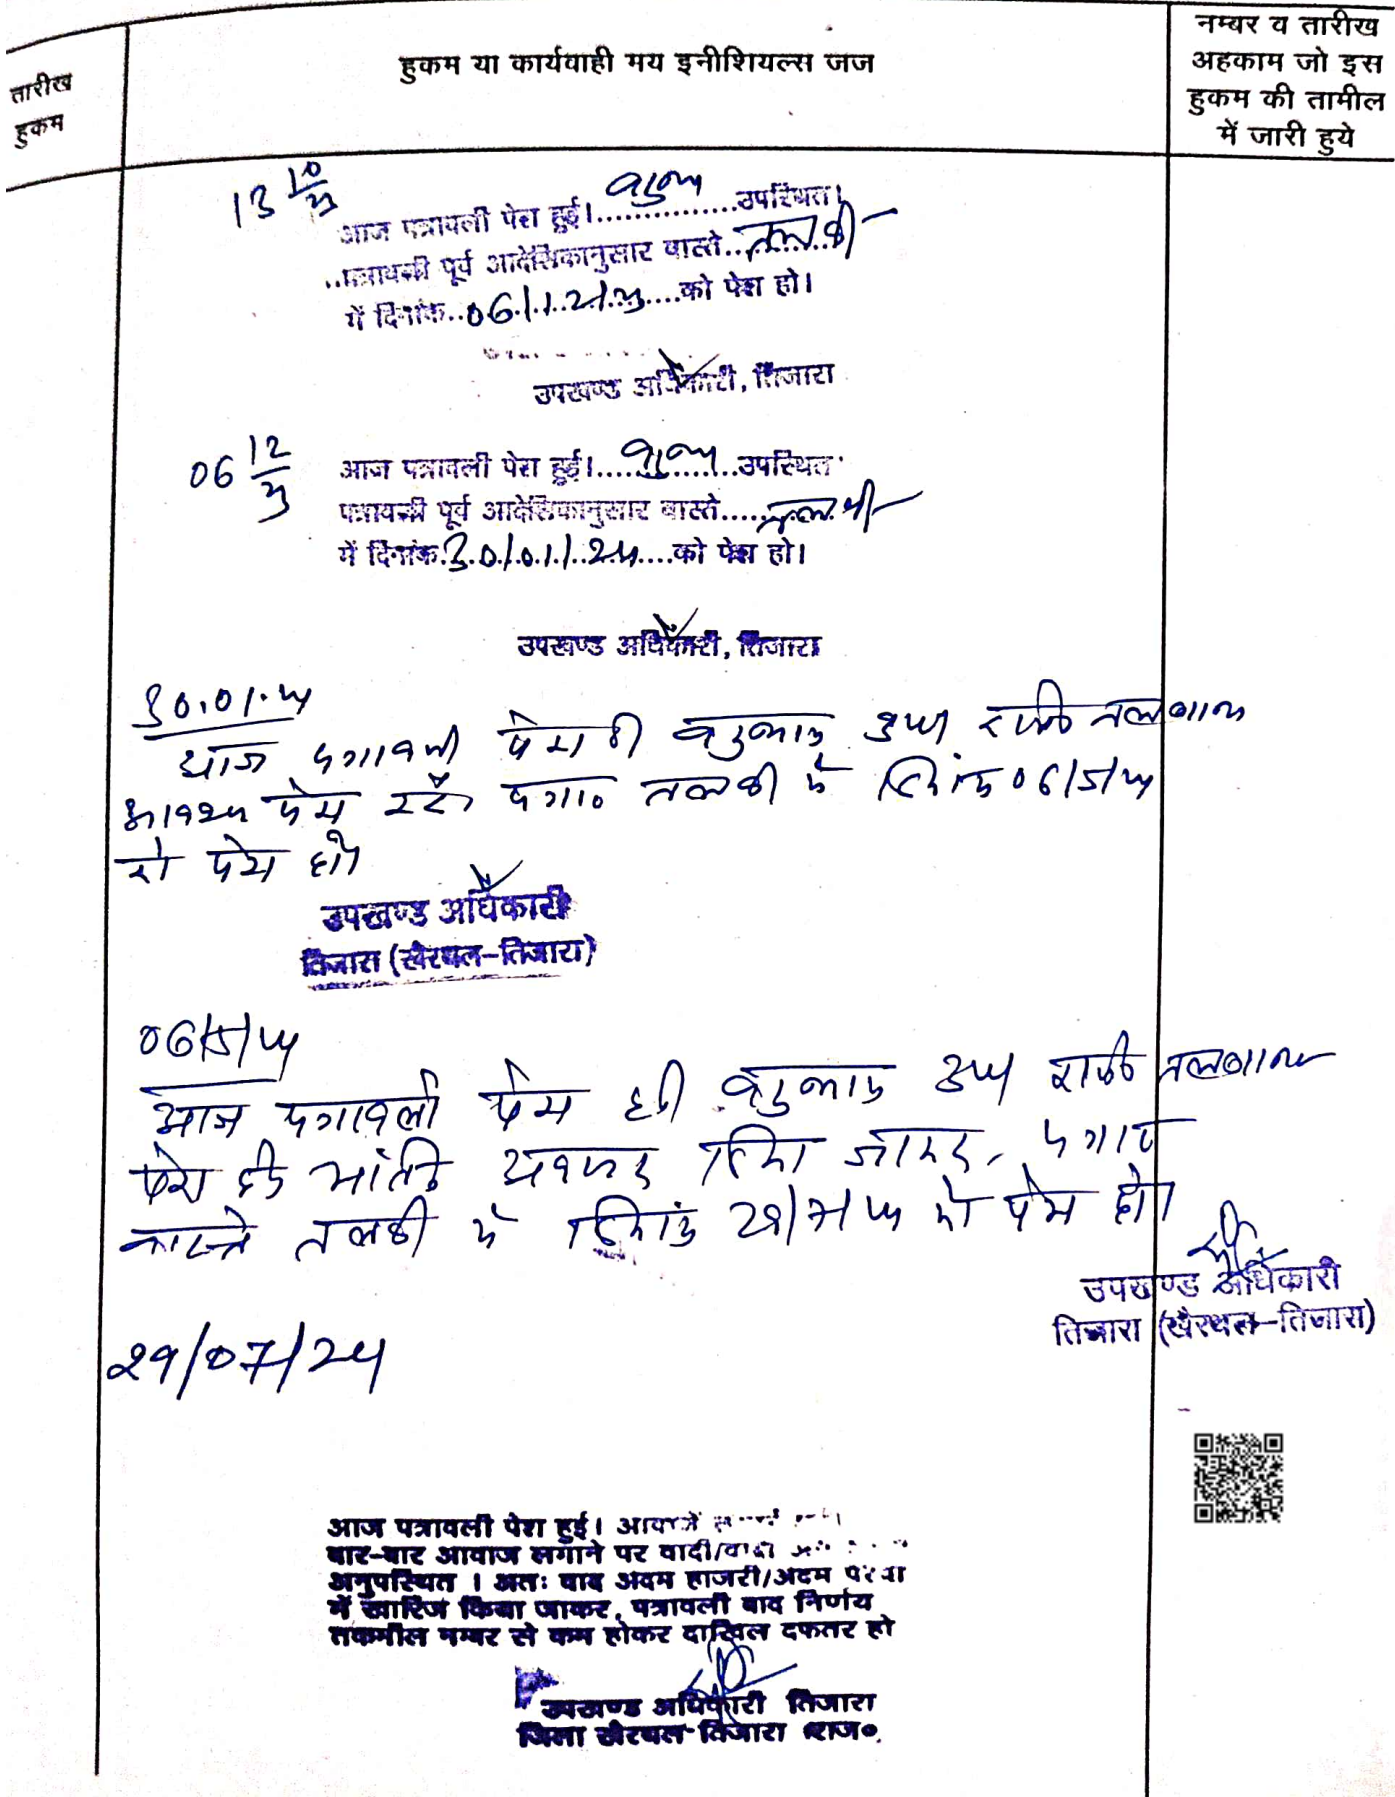 तारीख
हुकम
हुकम या कार्यवाही मय इनीशियल्स जज
नम्बर व तारीख
अहकाम जो इस
हुकम की तामील
में जारी हुये
13 10
आज पत्रावली पेश हुई।...............उपस्थित।
..पत्रावली पूर्व आदेशिकानुसार वास्ते..तलबी
में दिनांक..06/12/23....को पेश हो।
उपखण्ड अधिकारी, तिजारा
06 12
आज पत्रावली पेश हुई।...............उपस्थित
पत्रावली पूर्व आदेशिकानुसार वास्ते.....तलबी
में दिनांक.30/01/24....को पेश हो।
उपखण्ड अधिकारी, तिजारा
30.01.24
आज पत्रावली पेश हुई तलवाना
पेश करें तलबी में दिनांक 06/5/24
को पेश हो।
उपखण्ड अधिकारी
तिजारा (खैरथल-तिजारा)
06/5/24
आज पत्रावली पेश हुई तलवाना
पेश
वास्ते तलबी में दिनांक 29/7/24 को पेश हो।
उपखण्ड अधिकारी
तिजारा (खैरथल-तिजारा)
29/07/24
आज पत्रावली पेश हुई। आवाजें
बार-बार आवाज लगाने पर वादी/वादी
अनुपस्थित । अतः वाद अदम हाजरी/अदम पैरवी
में खारिज किया जाकर, पत्रावली बाद निर्णय
तकमील नम्बर से कम होकर दाखिल दफतर हो
उपखण्ड अधिकारी तिजारा
जिला खैरथल-तिजारा राज०